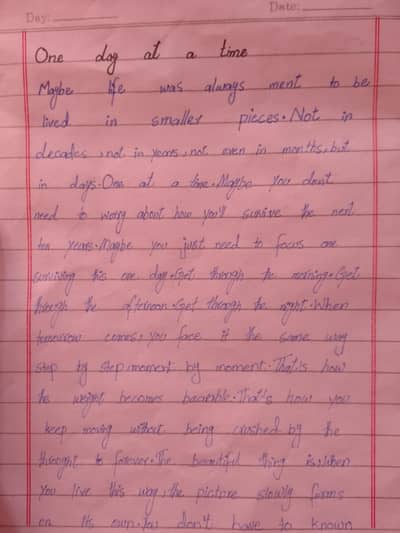 Day: Date:
One day at a time
Maybe life was always ment to be
lived in smaller pieces. Not in
decades, not in years, not even in months, but
in days. One at a time. Maybe you don't
need to worry about how you'll survive the next
ten years. Maybe you just need to focus one
surviving this one day. Get through the morning. Get
through the afternoon. Get through the night. When
tomorrow comes, you face it the same way
step by step moment by moment. That's how
the weight becomes bearable. That's how you
keep moving without being crushed by the
thought to forever. The beautiful thing is. When
you live this way, the picture slowly forms
on its own. You don't have to known